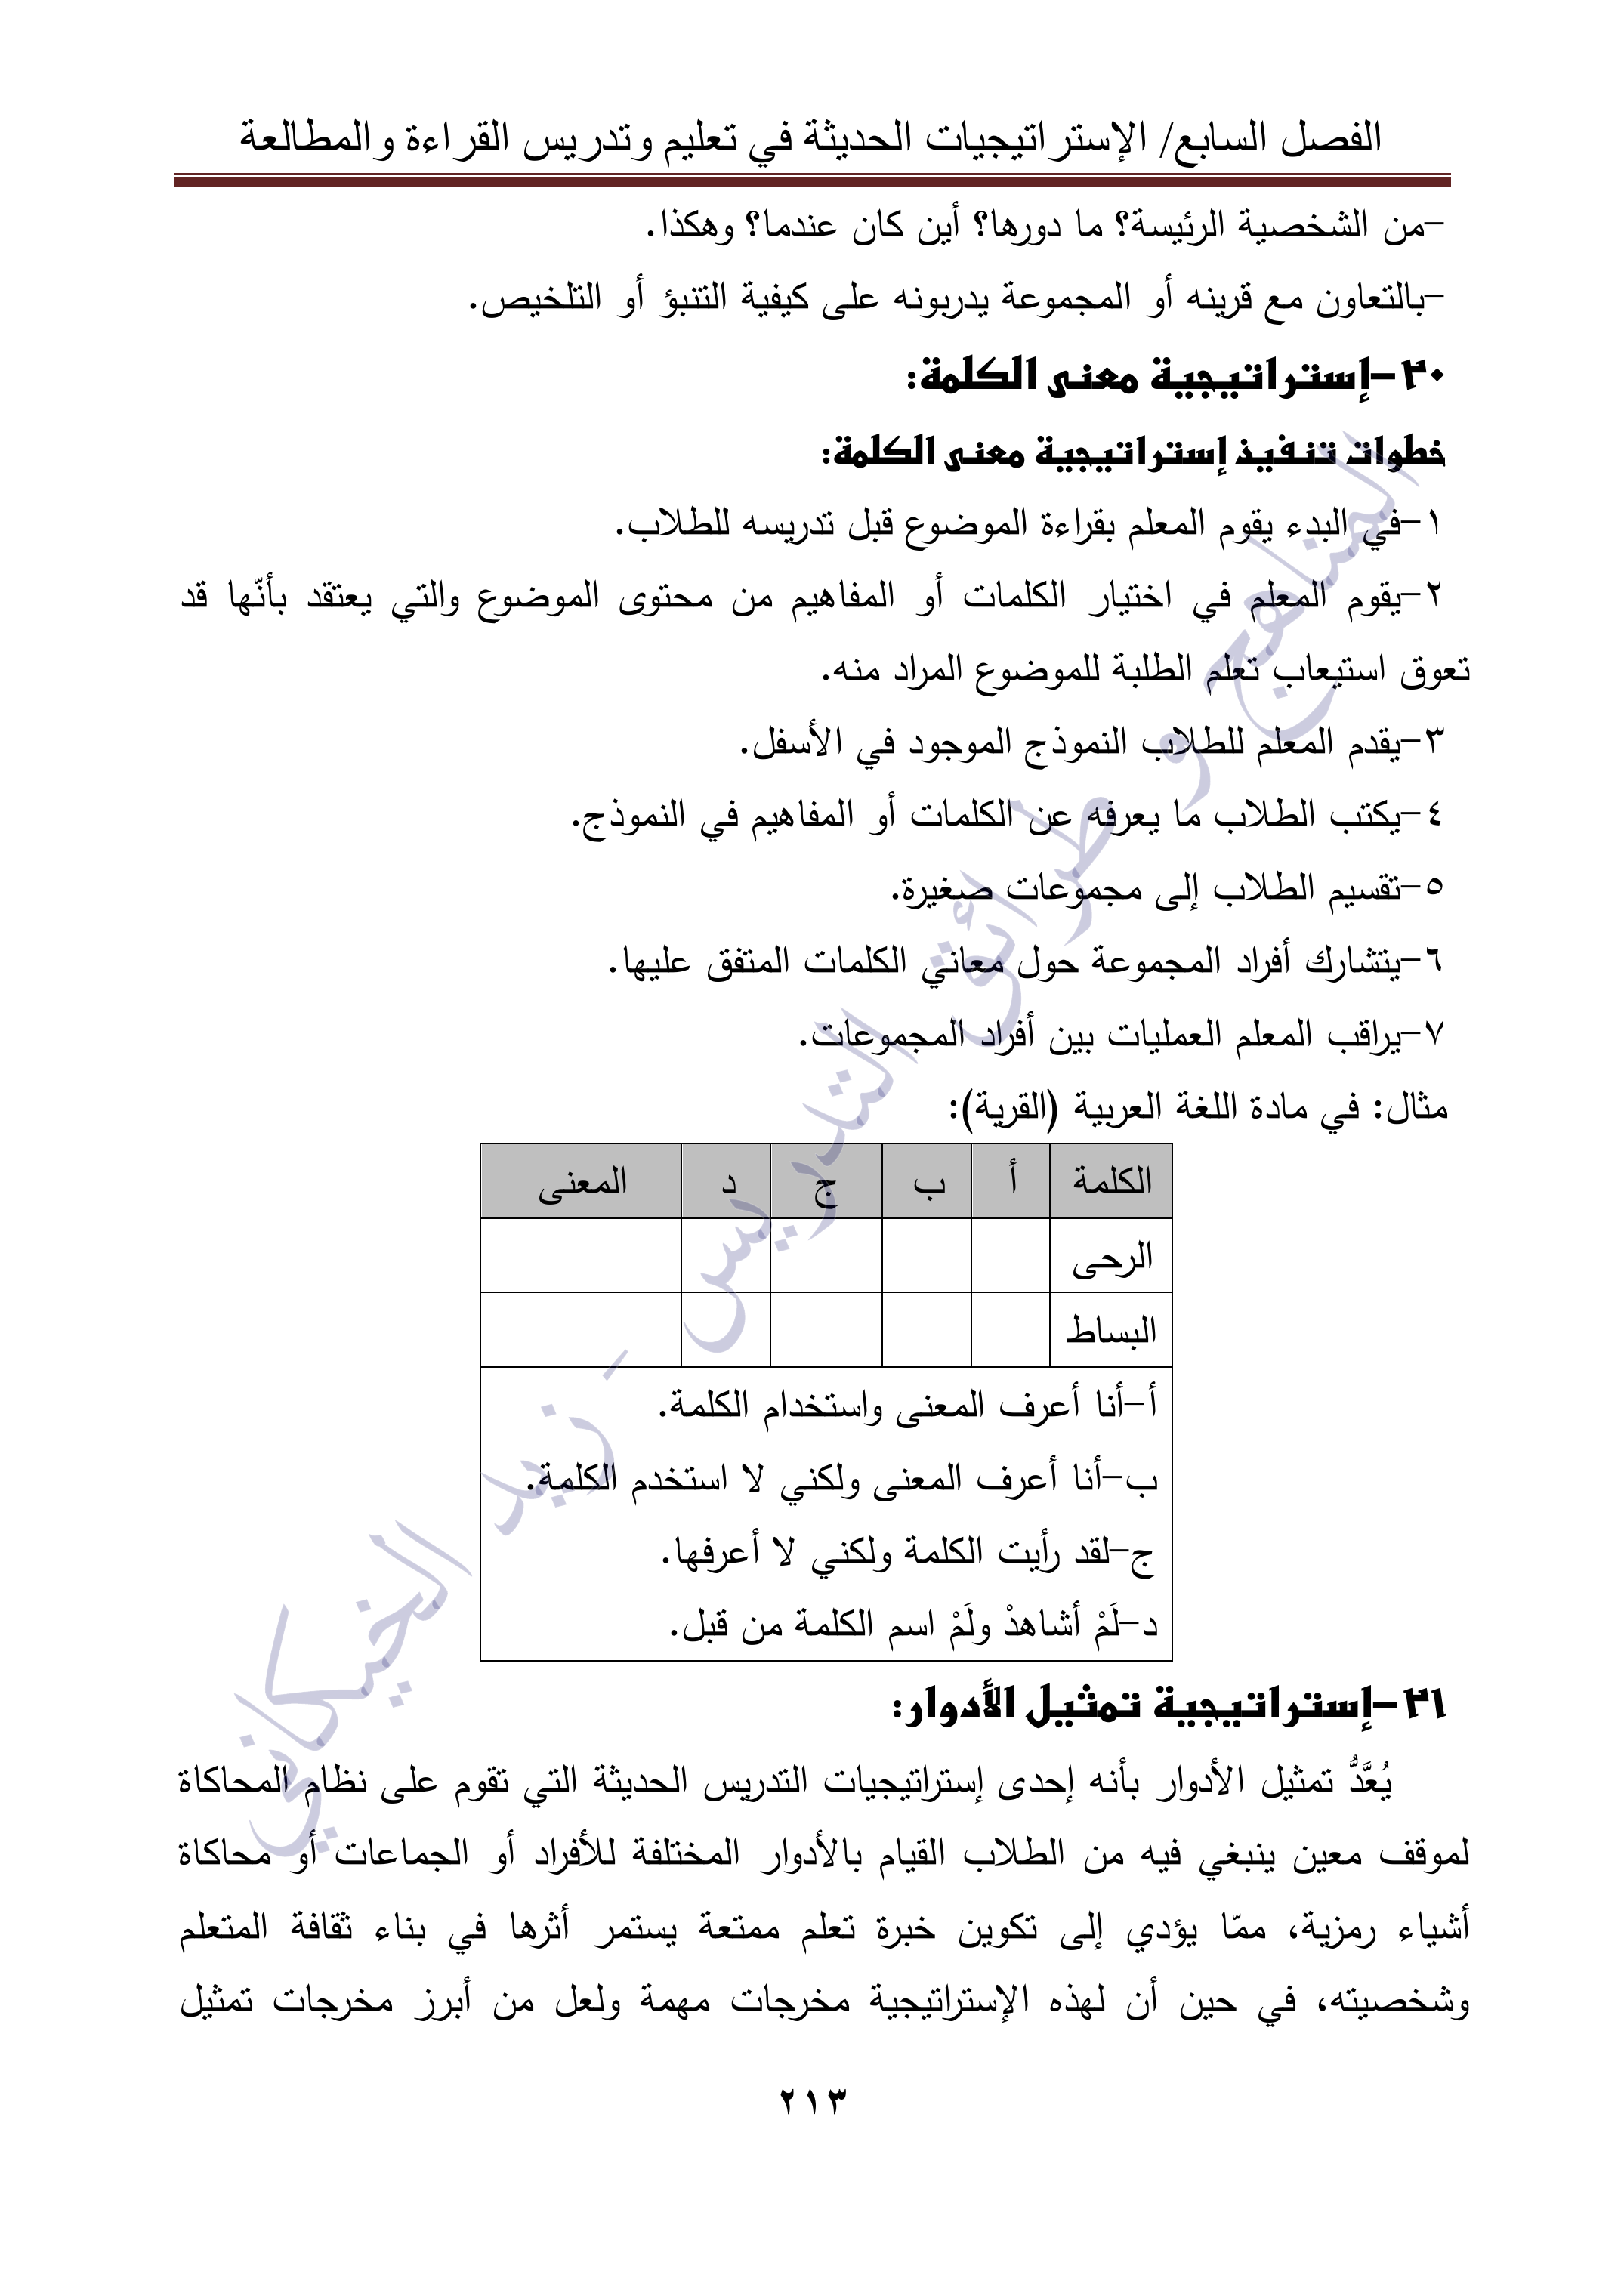 الفصل السابع/ الإستراتيجيات الحديثة في تعليم وتدريس القراءة والمطالعة
-من الشخصية الرئيسة؟ ما دورها؟ أين كان عندما؟ وهكذا.
-بالتعاون مع قرينه أو المجموعة يدربونه على كيفية التنبؤ أو التلخيص.
٣٠-إستراتيجية معنى الكلمة:
خطوات تنفيذ إستراتيجية معنى الكلمة:
١-في البدء يقوم المعلم بقراءة الموضوع قبل تدريسه للطلاب.
٢-يقوم المعلم في اختيار الكلمات أو المفاهيم من محتوى الموضوع والتي يعتقد بأنّها قد
تعوق استيعاب تعلم الطلبة للموضوع المراد منه.
٣-يقدم المعلم للطلاب النموذج الموجود في الأسفل.
٤-يكتب الطلاب ما يعرفه عن الكلمات أو المفاهيم في النموذج.
٥-تقسيم الطلاب إلى مجموعات صغيرة.
٦-يتشارك أفراد المجموعة حول معاني الكلمات المتفق عليها.
٧-يراقب المعلم العمليات بين أفراد المجموعات.
مثال: في مادة اللغة العربية (القرية):
الكلمة أ ب ج د المعنى
الرحى
البساط
أ-أنا أعرف المعنى واستخدام الكلمة.
ب-أنا أعرف المعنى ولكني لا استخدم الكلمة.
ج-لقد رأيت الكلمة ولكني لا أعرفها.
د-لَمْ أشاهدْ ولَمْ اسم الكلمة من قبل.
٣١-إستراتيجية تمثيل الأدوار:
يُعَّدُّ تمثيل الأدوار بأنه إحدى إستراتيجيات التدريس الحديثة التي تقوم على نظام المحاكاة
لموقف معين ينبغي فيه من الطلاب القيام بالأدوار المختلفة للأفراد أو الجماعات أو محاكاة
أشياء رمزية، ممّا يؤدي إلى تكوين خبرة تعلم ممتعة يستمر أثرها في بناء ثقافة المتعلم
وشخصيته، في حين أن لهذه الإستراتيجية مخرجات مهمة ولعل من أبرز مخرجات تمثيل
٢١٣
المناهج و طرائق التدريس - زيد الخيكاني